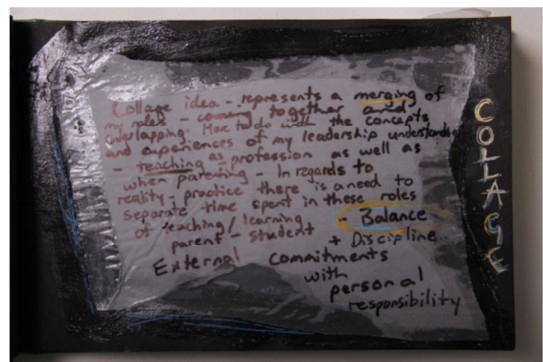 Collage idea - represents a merging of
my roles - coming together and
overlapping. More to do with the concepts
and experiences of my leadership understanding
- teaching as profession as well as
when parenting - In regards to
reality, practice there is a need to
separate time spent in these roles
of teaching/learning Balance
parent - student + Discipline
External commitments
with
personal
responsibility
COLLAGE